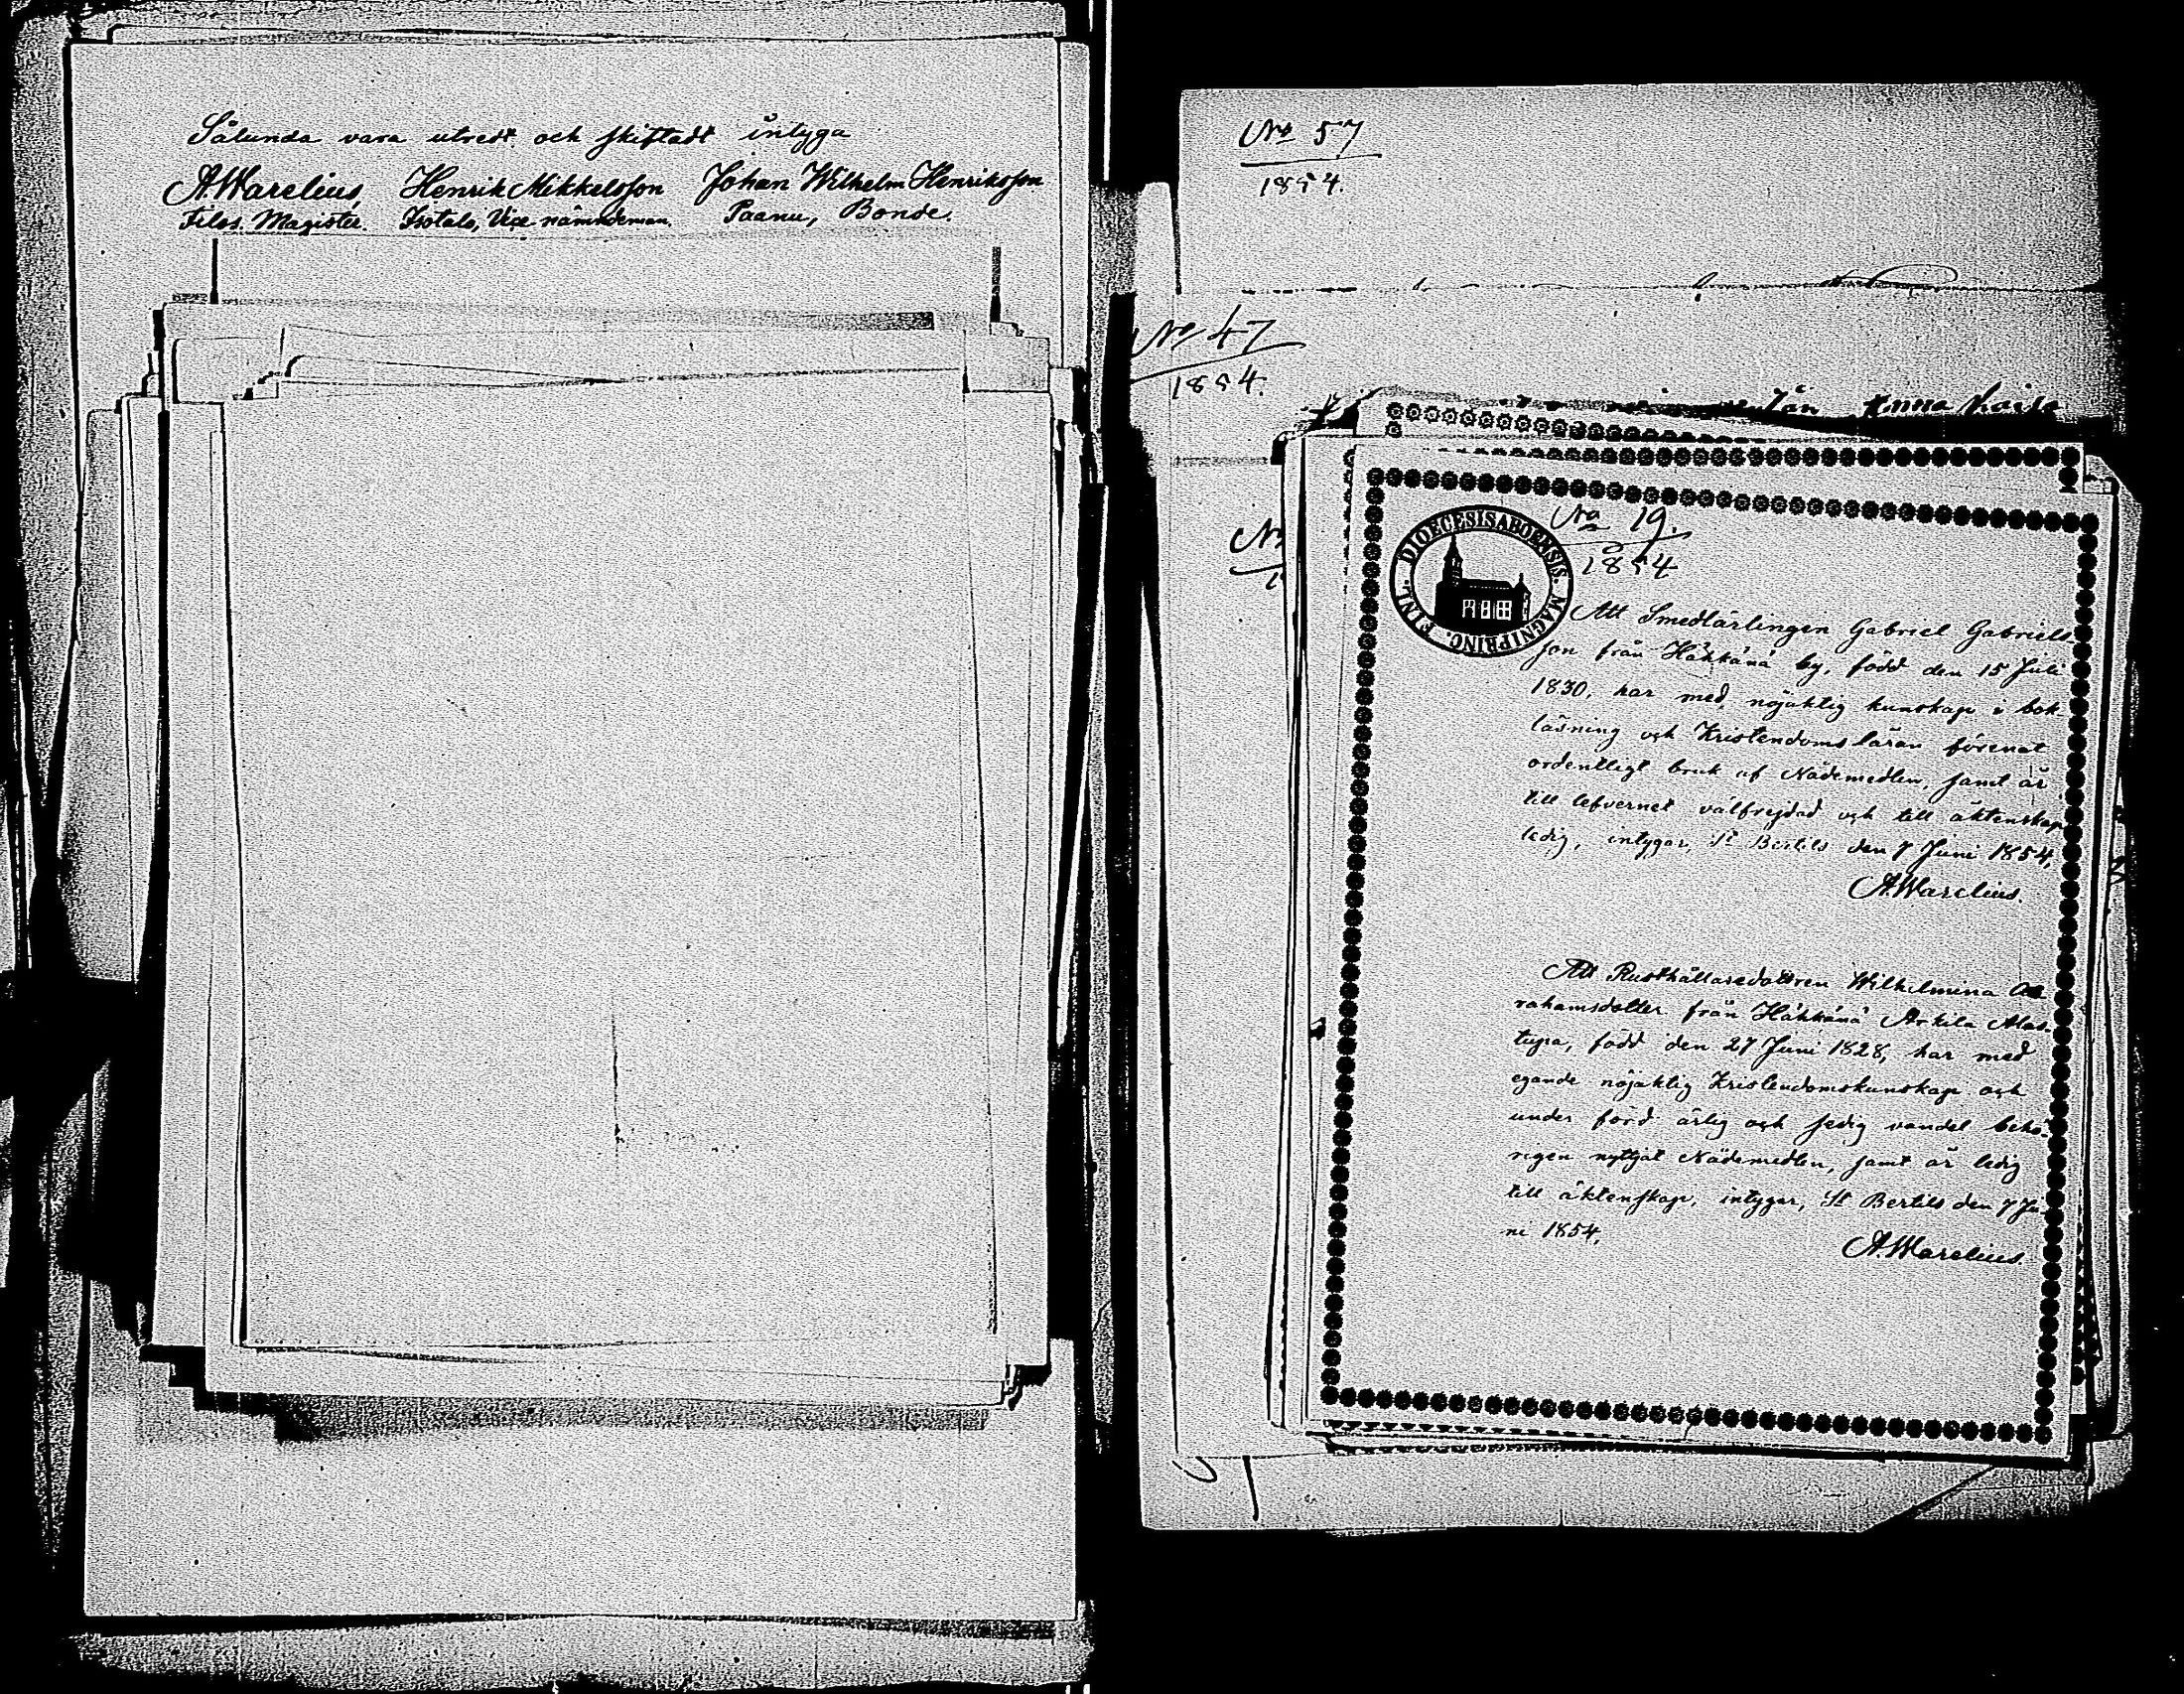 Sålunda vara utredt och skiftadt intyga
A. Warelius, Henrik Mikkelsson Johan Wilhelm Henriksson
Filos. Magister. Isotalo, Vice nämndeman. Paanu, Bonde.
No 57
1854.
No 47
1854.
Anna Kaisa
No 19.
1854
DIOECESIS ABOENSIS. MAGNI PRINC. FINL.
Att Smedlärlingen Gabriel Gabriels
son från Häkkänä by, född den 15 Juli
1830, har med nöjaktig kunskap i bok
läsning och Kristendomsläran förenat
ordentligt bruk af Nådemedlen, samt är
till lefvernet välfrejdad och till äktenskap
ledig, intygar, St Bertils den 7 Juni 1854,
A. Warelius.
Att Rusthållaredottren Wilhelmina Ab
rahamsdotter från Häkkänä Arkila Alas
tupa, född den 27 Juni 1828, har med
egande nöjaktig Kristendomskunskap och
under förd ärlig och sedig vandel behö
rigen nyttjat Nådemedlen, samt är ledig
till äktenskap, intygar, St Bertils den 7 Ju
ni 1854,
A. Warelius.